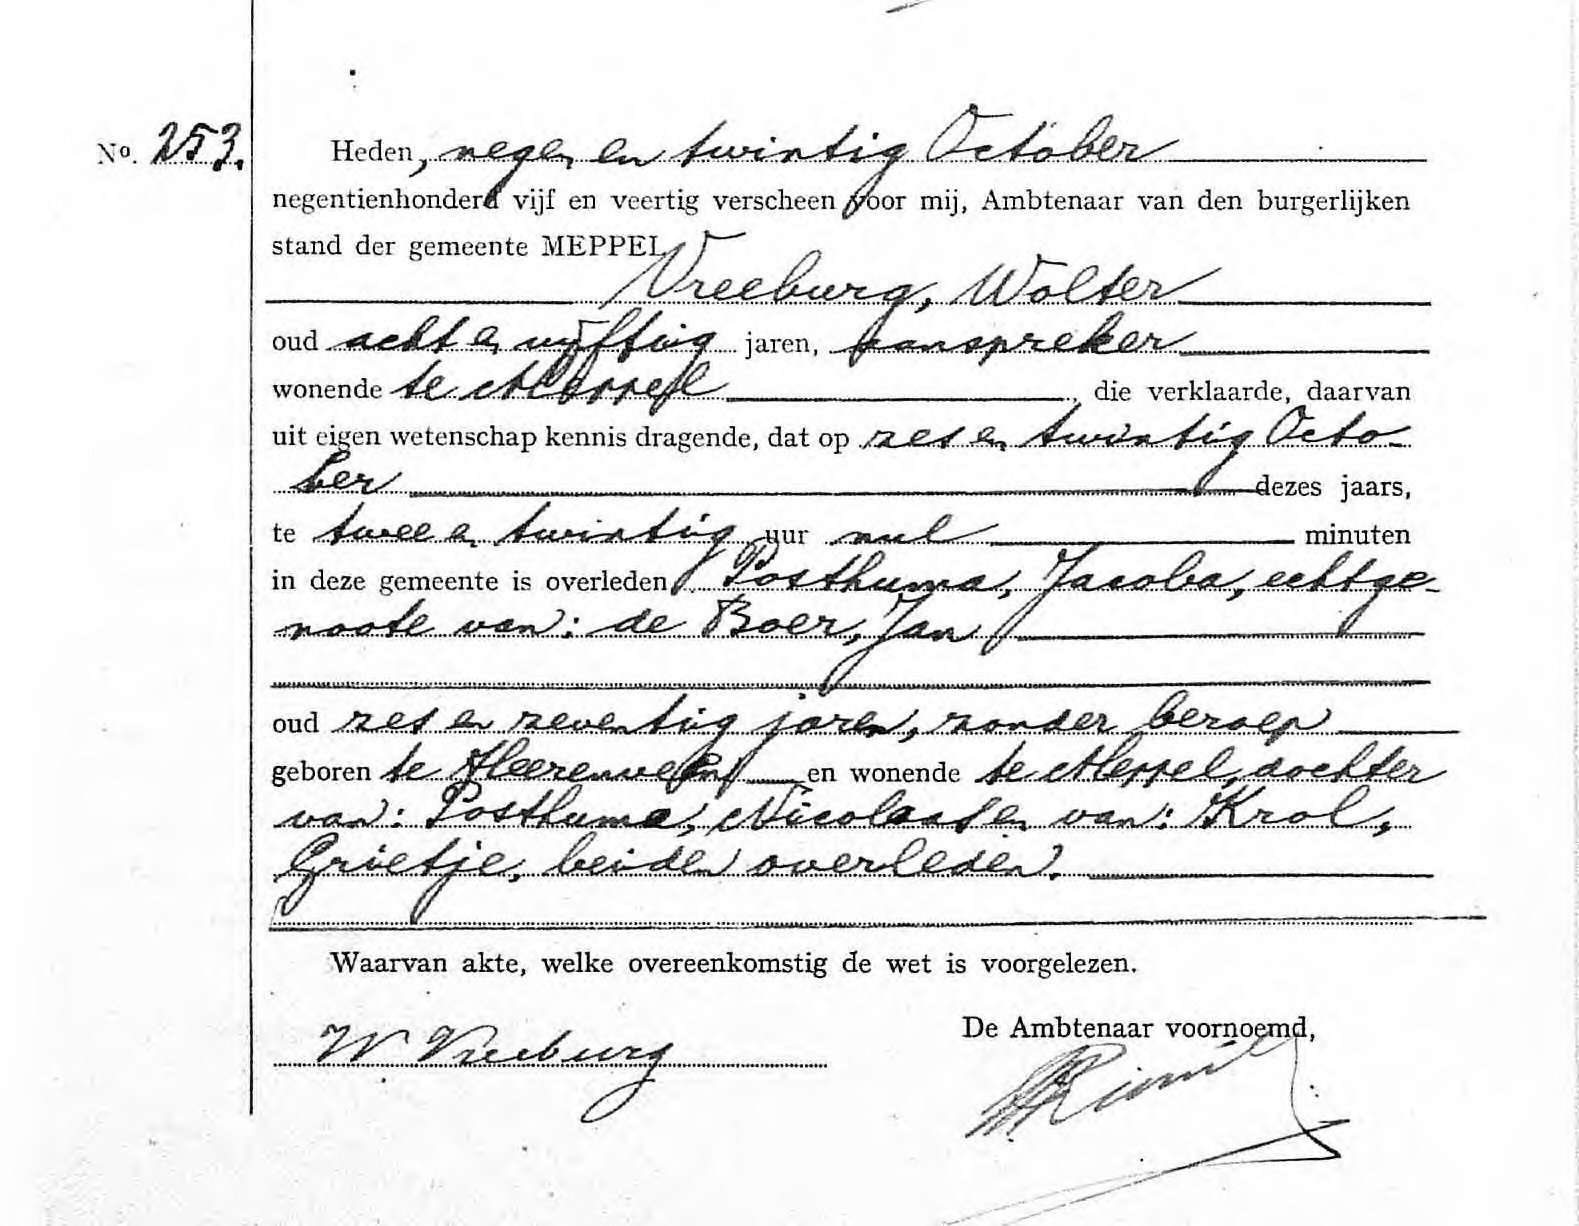 No. 253.
Heden, negen en twintig October
negentienhonderd vijf en veertig verscheen voor mij, Ambtenaar van den burgerlijken
stand der gemeente MEPPEL
Vreeburg, Wolter
oud acht en vijftig jaren, aanspreker
wonende te Meppel, die verklaarde, daarvan
uit eigen wetenschap kennis dragende, dat op zes en twintig Octo-
ber dezes jaars,
te twee en twintig uur nul minuten
in deze gemeente is overleden Posthuma, Jacoba, echtge-
noote van: de Boer, Jan
oud zes en zeventig jaren, zonder beroep
geboren te Heerenveen en wonende te Meppel, dochter
van: Posthuma, Nicolaas en van: Krol,
Grietje, beiden overleden.
Waarvan akte, welke overeenkomstig de wet is voorgelezen.
De Ambtenaar voornoemd,
W Vreeburg